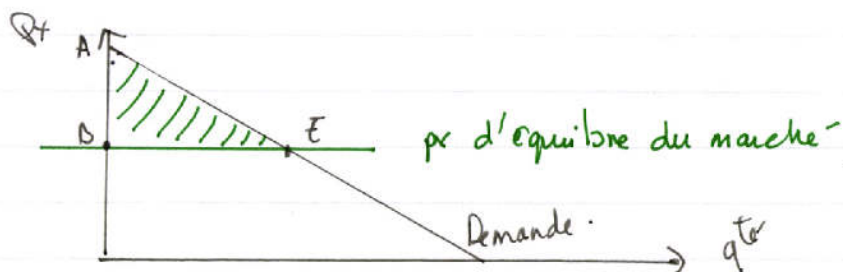 A
B
E
pr d'équilibre du marché
Demande.
qté